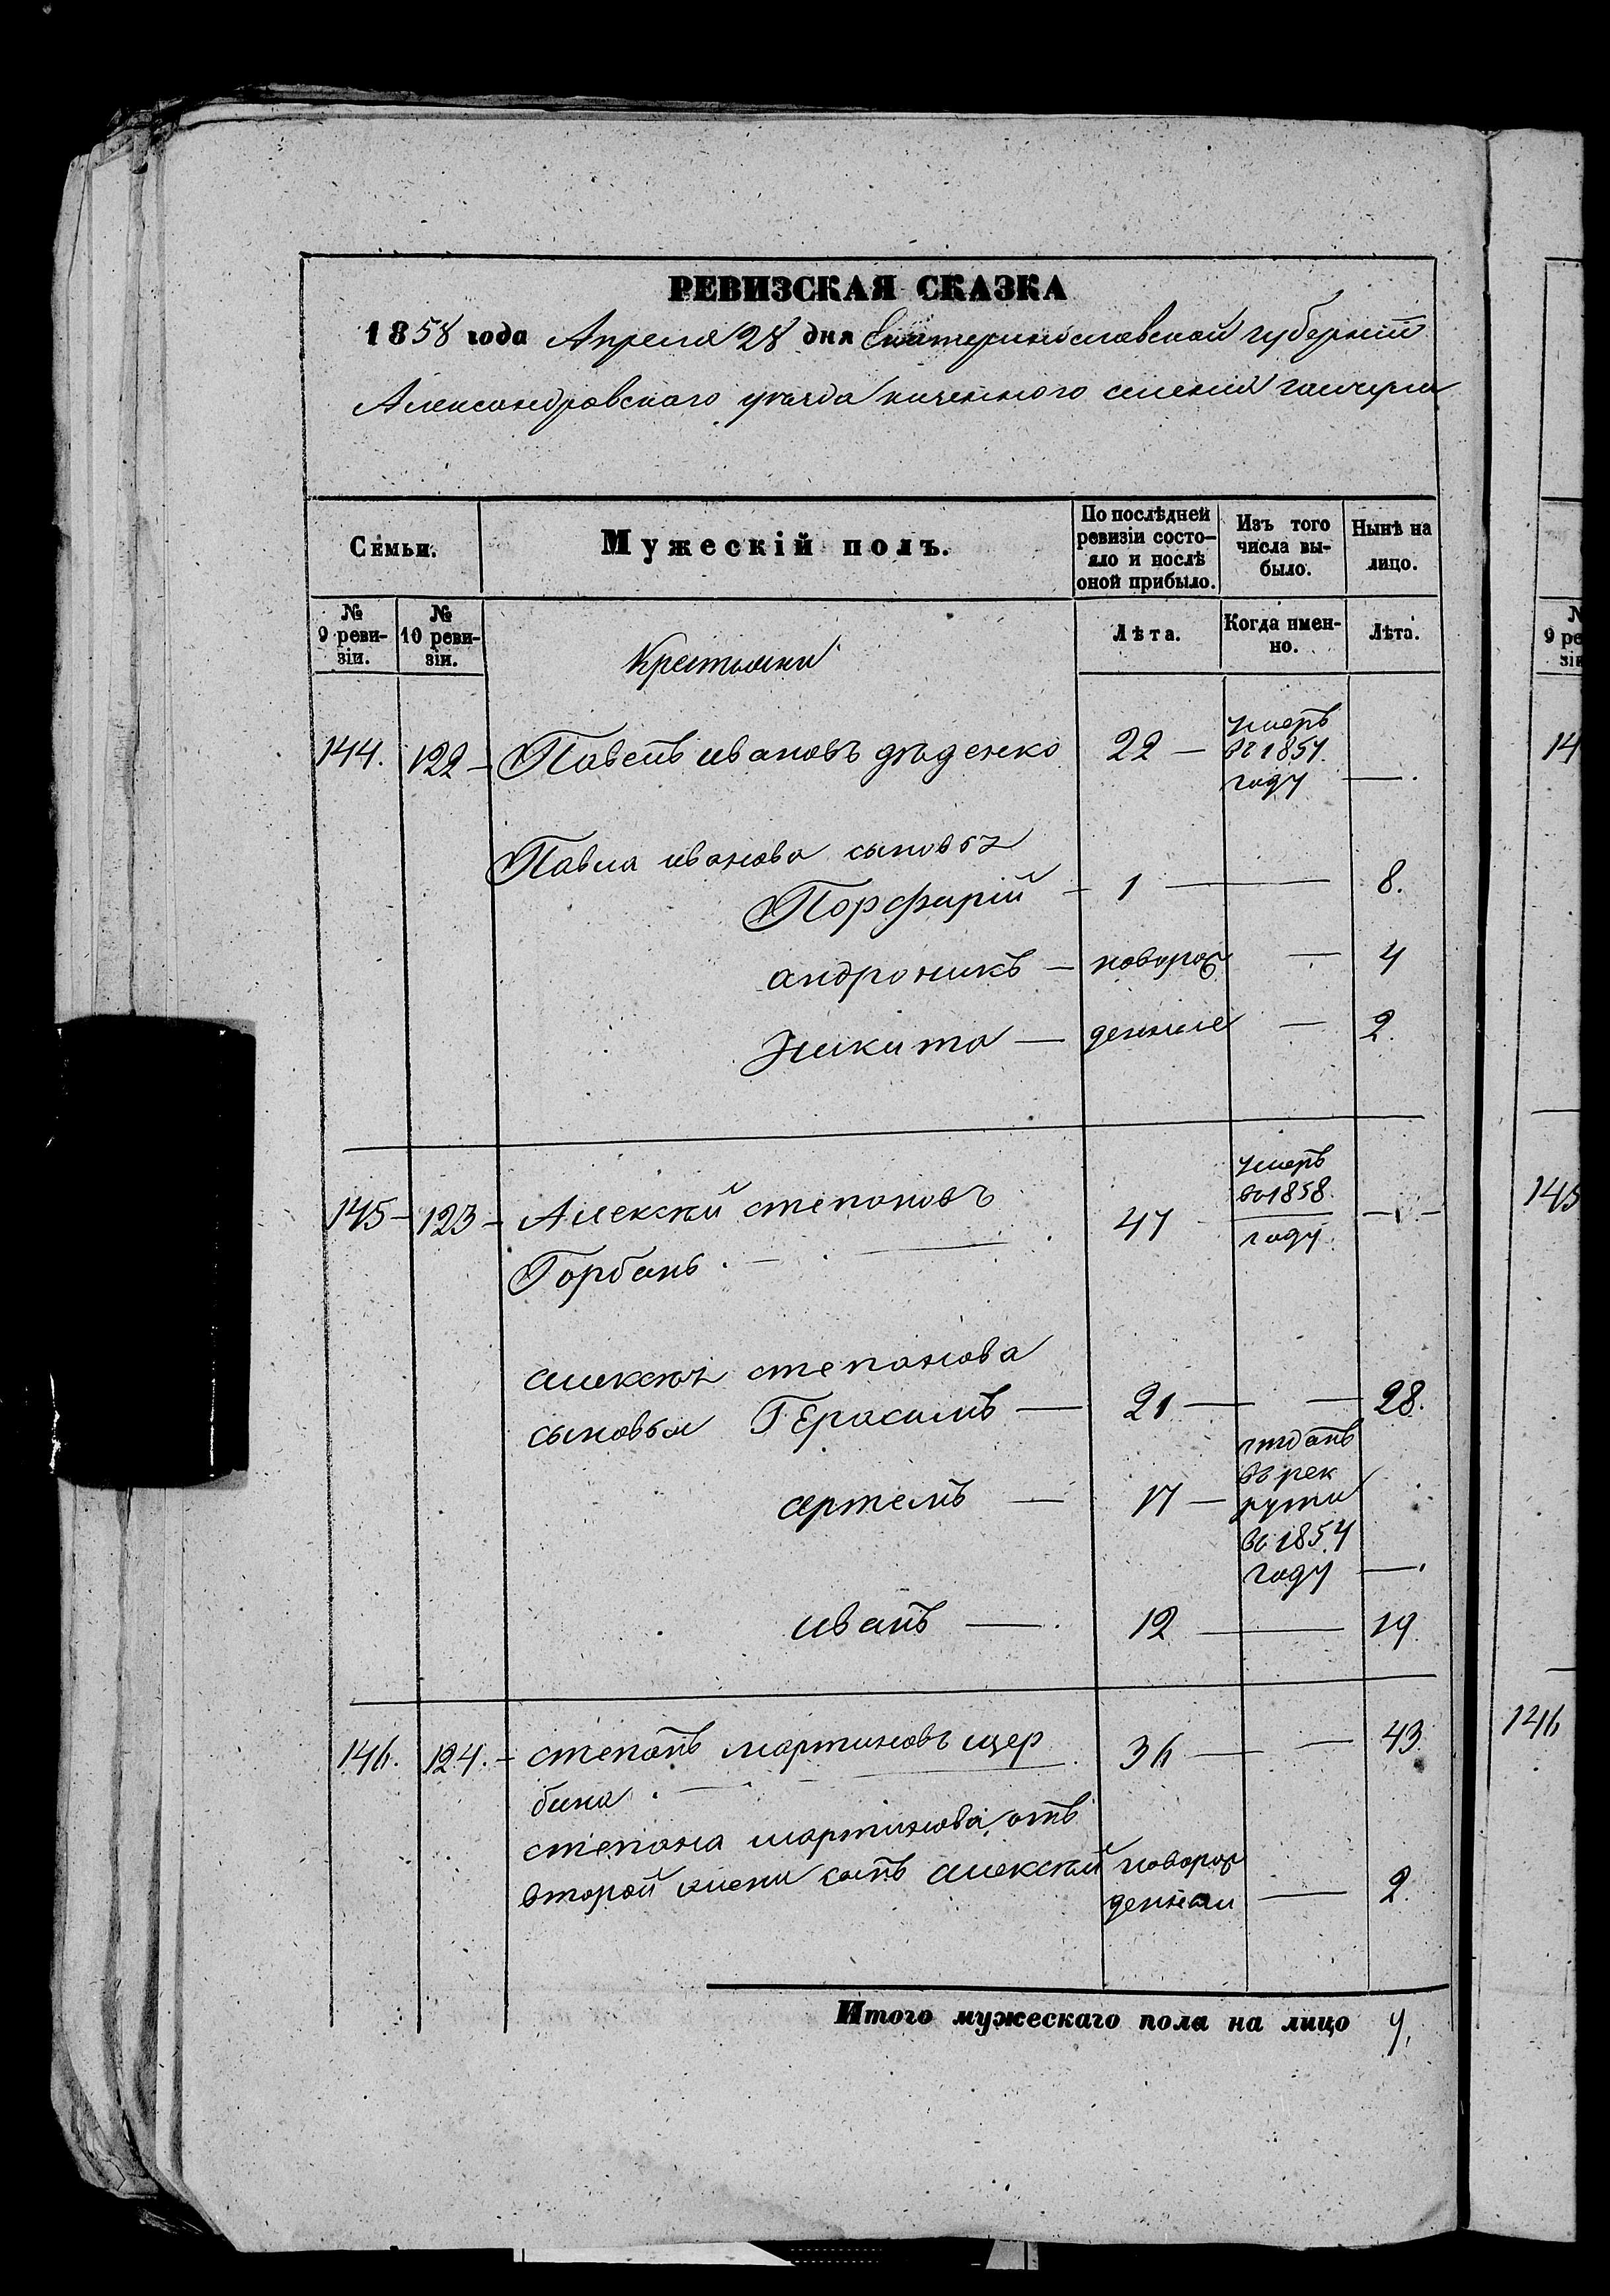 РЕВИЗСКАЯ СКАЗКА
1858 года Апреля 28 дня Екатеринославской губерніи
Александровскаго уѣзда казенного селения гайчула
Семьи.
Мужескій полъ.
По послѣдней ревизіи состо-
яло и послѣ
оной прибыло.
Изъ того
числа вы-
было.
Нынѣ на
лицо.
№
9 реви-
зіи.
№
10 реви-
зіи.
Крестьяни
Лѣта.
Когда имен-
но.
Лѣта.
144. 122 - Павелъ ивановъ дѣденко 22 — умеръ
въ 1857.
году —.
Павла иванова сыновья
Порфирій - 1 — 8.
андроникъ — новорож — 4
Никита — денние — 2.
145 - 123 - Алексѣй степановъ 47 умеръ
во 1858.
году
Горбань.
алексѣя степанова
сыновья Герасимъ — 21 — — 28.
артемъ — 17 — отданъ
въ рек
рути
во 1854
году —.
иванъ — 12 — 19.
146. 124. - степанъ мартиновъ щер 36 — — 43.
бина.
степана мартинова отъ
второй жени сынъ алексѣй новорож
денний — 2.
Итого мужескаго пола на лицо 7.
9 ре
145
146